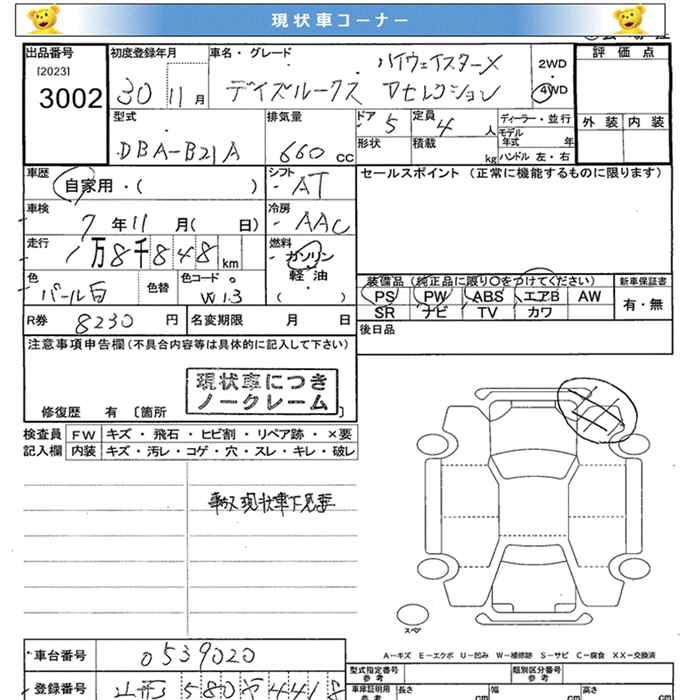 現状車コーナー
出品番号 初度登録年月 車名・グレード 評価点
[2023] ハイウェイスターX 2WD
3002 30 11月 デイズルークス Vセレクション 4WD
型式 排気量 ドア 5 定員 4人 ディーラー・並行 外装 内装
モデル年式 年
DBA-B21A 660cc 形状 積載 kg ハンドル 左・右
車歴 自家用・( ) シフト AT セールスポイント (正常に機能するものに限ります)
車検 7年11月( 日) 冷房 AAC
走行 1万8千848km 燃料 ガソリン
軽油
( )
色 パール白 色替 色コード W13 装備品 (純正品に限り○をつけてください) 新車保証書
PS PW ABS エアB AW 有・無
SR ナビ TV カワ
R券 8230円 名変期限 月 日 後日品
注意事項申告欄(不具合内容等は具体的に記入して下さい)
現状車につき
ノークレーム
修復歴 有 〔箇所 〕
検査員 FW キズ・飛石・ヒビ割・リペア跡・×要
記入欄 内装 キズ・汚レ・コゲ・穴・スレ・キレ・破レ
現状車下見要
スペア
A−キズ E−エクボ U−凹み W−補修跡 S−サビ C−腐食 XX−交換済
車台番号 0539020 型式指定番号 参考 類別区分番号 参考
登録番号 580 4418 車庫証明用 参考 長さ cm 幅 cm 高さ cm